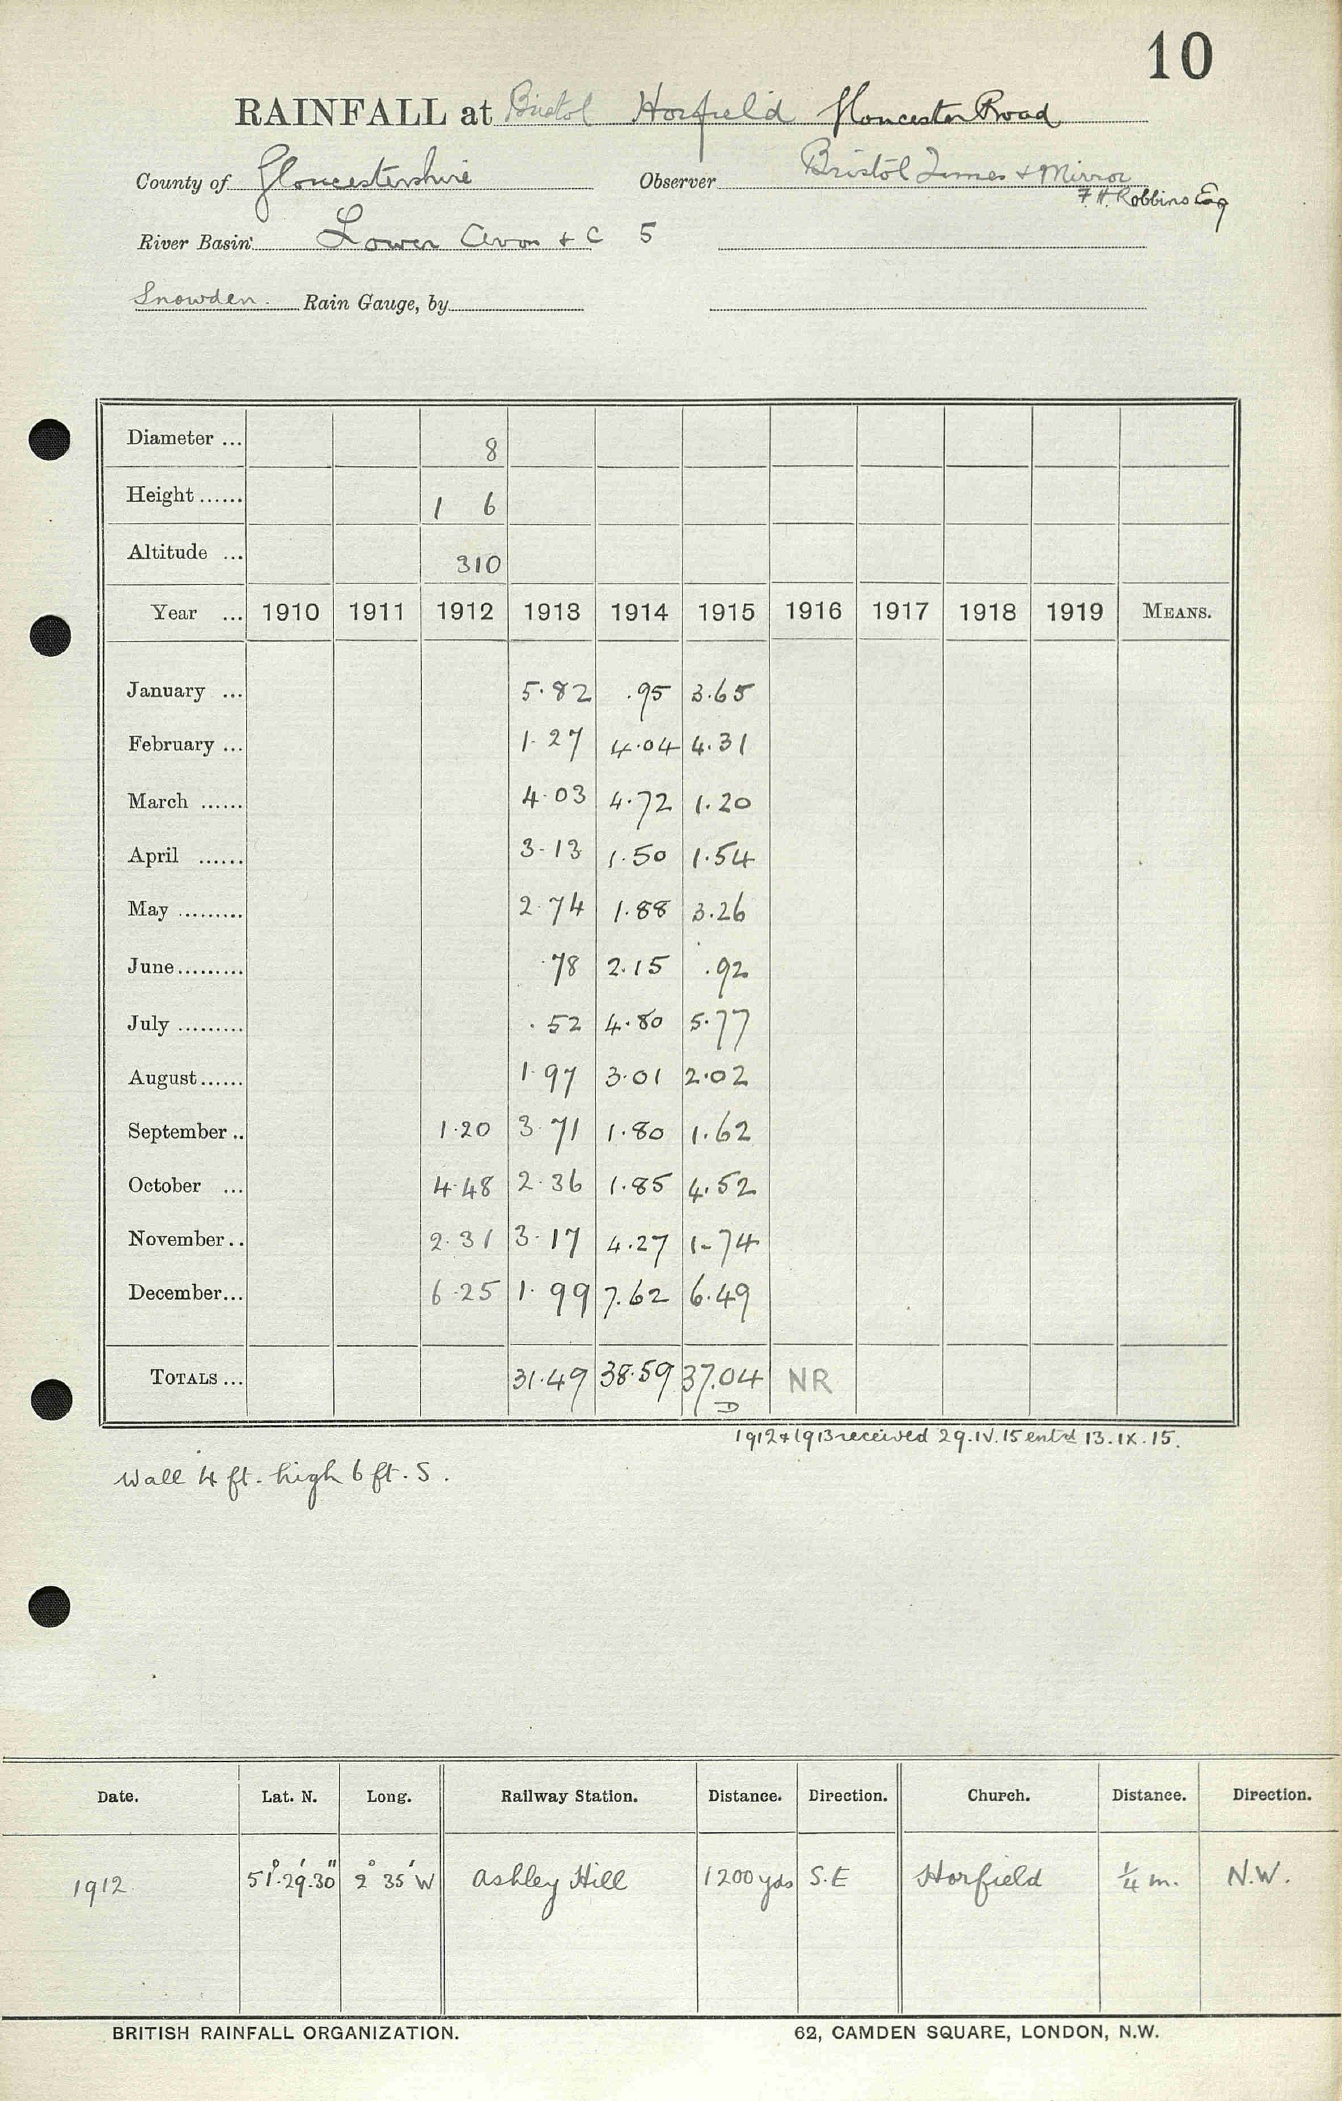 10
RAINFALL at Bristol Horfield Gloucester Road
County of Gloucestershire Observer Bristol Times & Mirror
F. H. Robbins Esq
River Basin Lower Avon & C 5
Snowden. Rain Gauge, by
Diameter ... 8
Height ...... 1 6
Altitude ... 310
Year ... 1910 1911 1912 1913 1914 1915 1916 1917 1918 1919 MEANS.
January ... 5.82 .95 3.65
February ... 1.27 4.04 4.31
March ...... 4.03 4.72 1.20
April ...... 3.13 1.50 1.54
May ......... 2.74 1.88 3.26
June ......... .78 2.15 .92
July ......... .52 4.80 5.77
August ...... 1.97 3.01 2.02
September .. 1.20 3.71 1.80 1.62
October ... 4.48 2.36 1.85 4.52
November .. 2.31 3.17 4.27 1-74
December ... 6.25 1.99 7.62 6.49
TOTALS ... 31.49 38.59 37.04 NR
D
1912 & 1913 received 29.IV.15 entd 13.IX.15.
Wall 4 ft. high 6 ft. S.
Date. Lat. N. Long. Railway Station. Distance. Direction. Church. Distance. Direction.
1912 51°.29'.30" 2° 35' W Ashley Hill 1200 yds S.E Horfield ¼ m. N.W.
BRITISH RAINFALL ORGANIZATION. 62, CAMDEN SQUARE, LONDON, N.W.